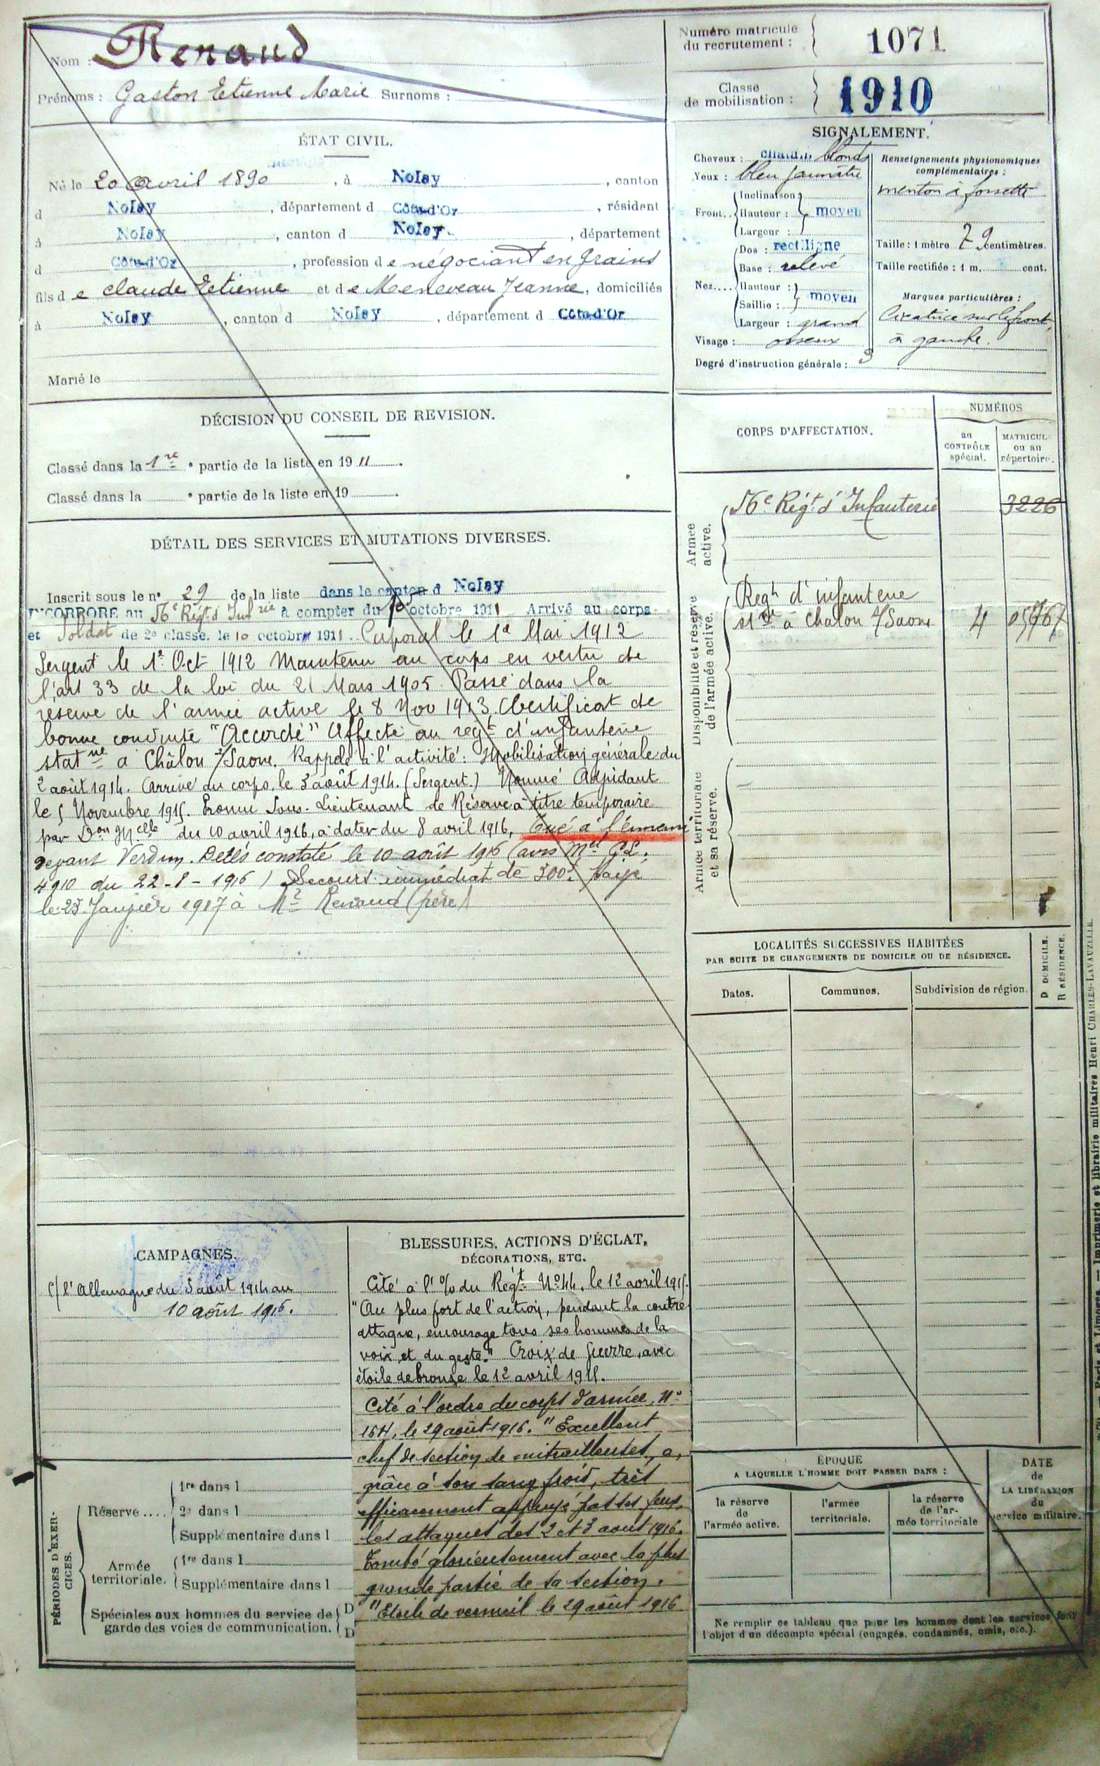 Nom : Renaud
Prénoms : Gaston Etienne Marie Surnoms :
Numéro matricule
du recrutement : 1071
Classe
de mobilisation : 1910
ÉTAT CIVIL.
Né le 20 avril 1890, à Nolay, canton
d Nolay, département d Côte-d'Or, résident
à Nolay, canton d Nolay, département
d Côte-d'Or, profession d e négociant en grains
fils d e Claude Etienne et d e Meneveau Jeanne, domiciliés
à Nolay, canton d Nolay, département d Côte-d'Or
Marié le
SIGNALEMENT.
Cheveux : blonds
Yeux : bleu jaunâtre
Front : Inclinaison
Hauteur : moyen
Largeur :
Nez : Dos : rectiligne
Base : relevé
Hauteur : moyen
Saillie :
Largeur : grand
Visage : osseux
Degré d'instruction générale : 3
Renseignements physionomiques
complémentaires :
menton à fossette
Taille : 1 mètre 79 centimètres.
Taille rectifiée : 1 m. cent.
Marques particulières :
Cicatrice sur le front
à gauche.
DÉCISION DU CONSEIL DE REVISION.
Classé dans la 1re partie de la liste en 1911.
Classé dans la e partie de la liste en 19
DÉTAIL DES SERVICES ET MUTATIONS DIVERSES.
Inscrit sous le n° 29 de la liste dans le canton d Nolay
INCORPORÉ au 56e Régt d'Infrie à compter du 10 octobre 1911 Arrivé au corps
et Soldat de 2e classe, le 10 octobre 1911. Caporal le 1er Mai 1912
Sergent le 1er Oct 1912 Maintenu au corps en vertu de
l'art 33 de la loi du 21 Mars 1905. Passé dans la
réserve de l'armée active le 8 Nov 1913 Certificat de
bonne conduite "Accordé" Affecté au regt d'infanterie
statné à Châlon s/Saone. Rappelé à l'activité : Mobilisation générale du
2 août 1914. Arrivé au corps le 3 août 1914. (Sergent.) Nommé Adjudant
le 5 Novembre 1915. Promu Sous-Lieutenant de Réserve à titre temporaire
par Don Mlle du 10 avril 1916, à dater du 8 avril 1916, Tué à l'ennemi
devant Verdun. Décès constaté le 10 août 1916 (avis Mel G.L.
4910 du 22-8-1916) Secours immédiat de 300f. payé
le 25 Janvier 1917 à Mr Renaud (père)
CORPS D'AFFECTATION.
NUMÉROS
au
CONTRÔLE
spécial.
MATRICULE
ou au
répertoire.
Armée
active.
56e Régt d'Infanterie 3226
Disponibilité et réserve
de l'armée active.
Regt d'infanterie
stné à Chalon s/Saone 4
Armée territoriale
et sa réserve.
LOCALITÉS SUCCESSIVES HABITÉES
PAR SUITE DE CHANGEMENTS DE DOMICILE OU DE RÉSIDENCE.
Dates.
Communes.
Subdivision de région.
D DOMICILE.
R RÉSIDENCE.
CAMPAGNES.
C/ l'Allemagne du 3 août 1914 au
10 août 1916.
BLESSURES, ACTIONS D'ÉCLAT,
DÉCORATIONS, ETC.
Cité à l'o/ du Régt N° 44, le 12 avril 1915.
"Au plus fort de l'action, pendant la contre
attaque, encourage tous ses hommes de la
voix et du geste." Croix de Guerre, avec
étoile de bronze le 12 avril 1915.
Cité à l'ordre du corps d'armée, N°
164, le 29 août 1916. "Excellent
chef de section de mitrailleuses, a,
grâce à son sang froid, très
efficacement appuyé par ses feux,
les attaques des 2 et 3 août 1916.
Tombé glorieusement avec la plus
grande partie de sa section.
"Etoile de vermeil le 29 août 1916
PÉRIODES D'EXERCICES.
Réserve.... 1re dans l
2e dans l
Supplémentaire dans l
Armée
territoriale. 1re dans l
Supplémentaire dans l
Spéciales aux hommes du service de
garde des voies de communication.
D
D
ÉPOQUE
A LAQUELLE L'HOMME DOIT PASSER DANS :
la réserve
de
l'armée active.
l'armée
territoriale.
la réserve
de l'ar-
mée territoriale
DATE
de
LA LIBÉRATION
du
service militaire.
Ne remplir ce tableau que pour les hommes dont les services font
l'objet d'un décompte spécial (engagés, condamnés, omis, etc.).
Paris et Limoges. — Imprimerie et librairie militaires Henri CHARLES-LAVAUZELLE.